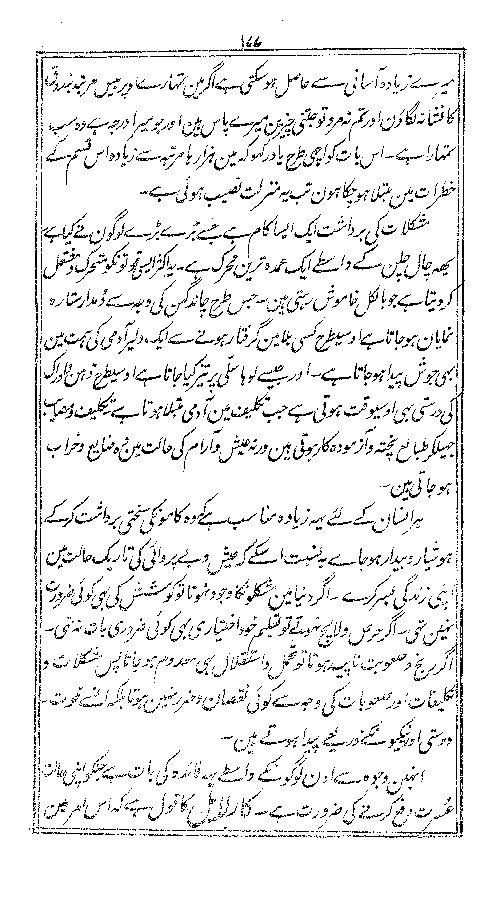 ۱۶۶
میرے زیادہ آسانی سے حاصل ہوسکتی ہے اگر مین تمہارے اوپر بیس مرتبہ بندوق
کا نشانہ لگاؤن اور تم نہ مرو تو جتنی چیزین میرے پاس ہین اور جو میرا درجہ ہے وہ سب
تمہارا ہے ۔ اس بات کو اچھی طرح یاد رکھو کہ مین ہزار ہا مرتبہ سے زیادہ اس قسم کے
خطرات مین مبتلا ہوچکا ہون تب یہ منزلت نصیب ہوئی ہے ۔
مشکلات کی برداشت ایک ایسا کام ہے جسے بڑے بڑے لوگون نے کیا ہے
یہہ چال چلن کے واسطے ایک عمدہ ترین محرک ہے ۔ یہ اکثر ایسی قوتونکو متحرک و مشتعل
کردیتا ہے جو بالکل خاموش رہتی ہین ۔ جس طرح چاند گہن کی وجہ سے دُمدار ستارہ
نمایان ہوجاتا ہے اوسیطرح کسی بلا مین گرفتار ہونے سے ایک دلیر آدمی کی ہمت مین
بھی جوش پیدا ہوجاتا ہے ۔ اور جیسے لوہا سلّی پر تیز کیا جاتا ہے اوسیطرح ذہن و ادراک
کی درستی بھی اوسیوقت ہوتی ہے جب تکلیف مین آدمی مبتلا ہوتا ہے یہ تکلیف و مصائب
جھیلکر طبائع پختہ و آزمودہ کار ہوتی ہین ورنہ عیش و آرام کی حالت مین وہ ضایع و خراب
ہو جاتی ہین ۔
ہر انسان کے لئے یہہ زیادہ مناسب ہے کہ وہ کامونکی سختی برداشت کرکے
ہوشیار و بیدار ہو جاے بہ نسبت اسکے کہ عیش و بے پروائی کی تاریک حالت مین
اپنی زندگی بسر کرے ۔ اگر دنیا مین مشکلونکا وجود نہوتا تو کوشش کی بھی کوئی ضرورت
نہین تھی ۔ اگر حرص و لالچ نہوتے تو تعلیم خود اختیاری بھی کوئی ضروری بات نہ تھی ۔
اگر رنج و صعوبت ناپید ہوتا تو تحمل و استقلال بھی معدوم ہو جاتا پس مشکلات و
تکلیفات اور صعوبات کی وجہ سے کوئی نقصان و ضرر نہین ہوتا بلکہ انسے قوت ۔
دوستی اور نیکیونکے ذریعے پیدا ہوتے ہین ۔
انہین وجوہ سے اون لوگونکے واسطے یہہ فائدہ کی بات ہے جنکو اپنی حالت
عُسرت دفع کرنے کی ضرورت ہے ۔ کارلائل کا قول ہے کہ اس امر مین